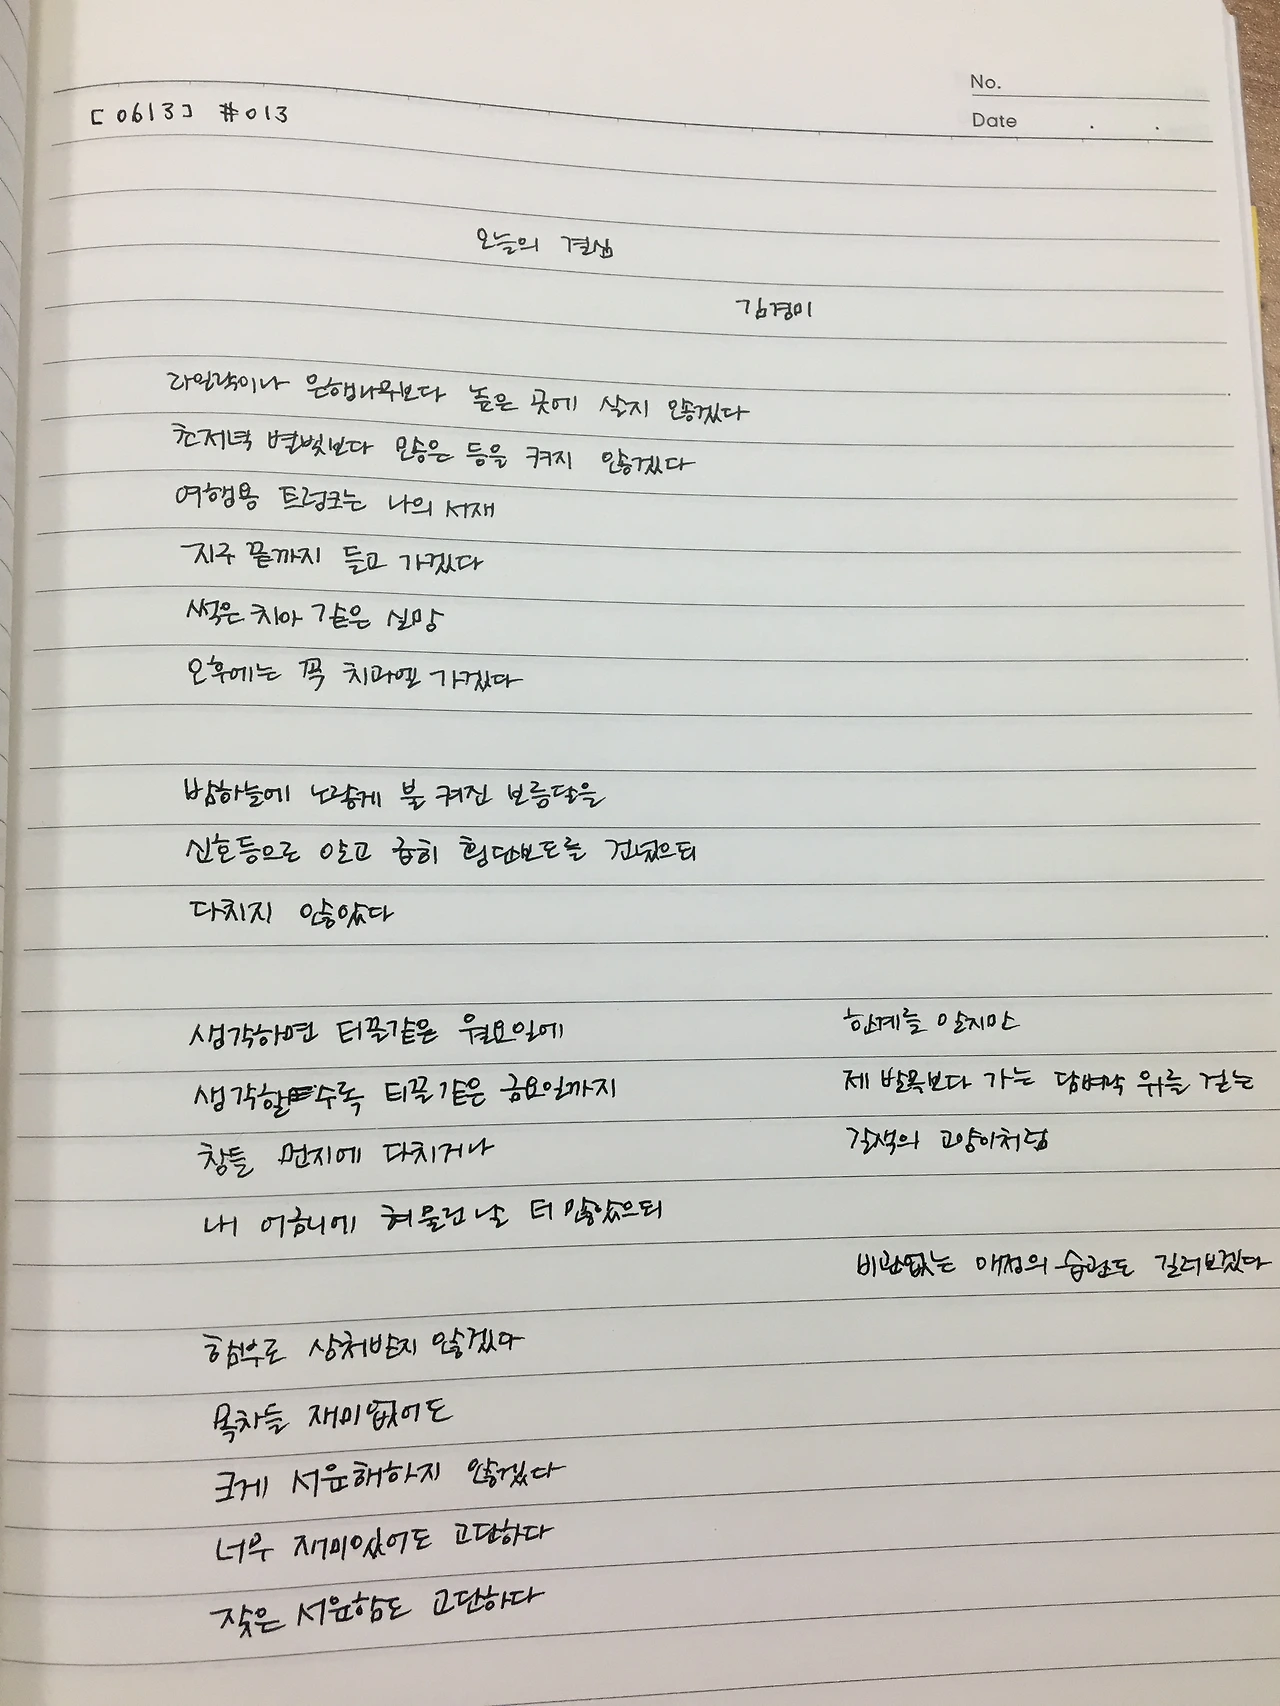 No.
Date . .
[0613] #013
오늘의 결심
김경미
라일락이나 은행나무보다 높은 곳에 살지 않겠다
초저녁 별빛보다 많은 등을 켜지 않겠다
여행용 트렁크는 나의 서재
지구 끝까지 들고 가겠다
썩은 치아 같은 실망
오후에는 꼭 치과엘 가겠다
밤하늘에 노랗게 불 켜진 보름달을
신호등으로 알고 급히 횡단보도를 건넜으되
다치지 않았다
생각하면 티끌같은 월요일에
생각할수록 티끌같은 금요일까지
창틀 먼지에 다치거나
내 어금니에 혀 물린 날 더 많았으되
함부로 상처받지 않겠다
목차들 재미없어도
크게 서운해하지 않겠다
너무 재미있어도 고단하다
잦은 서운함도 고단하다
한계를 알지만
제 발목보다 가는 담벼락 위를 걷는
갈색의 고양이처럼
비관없는 애정의 습관도 길러보겠다